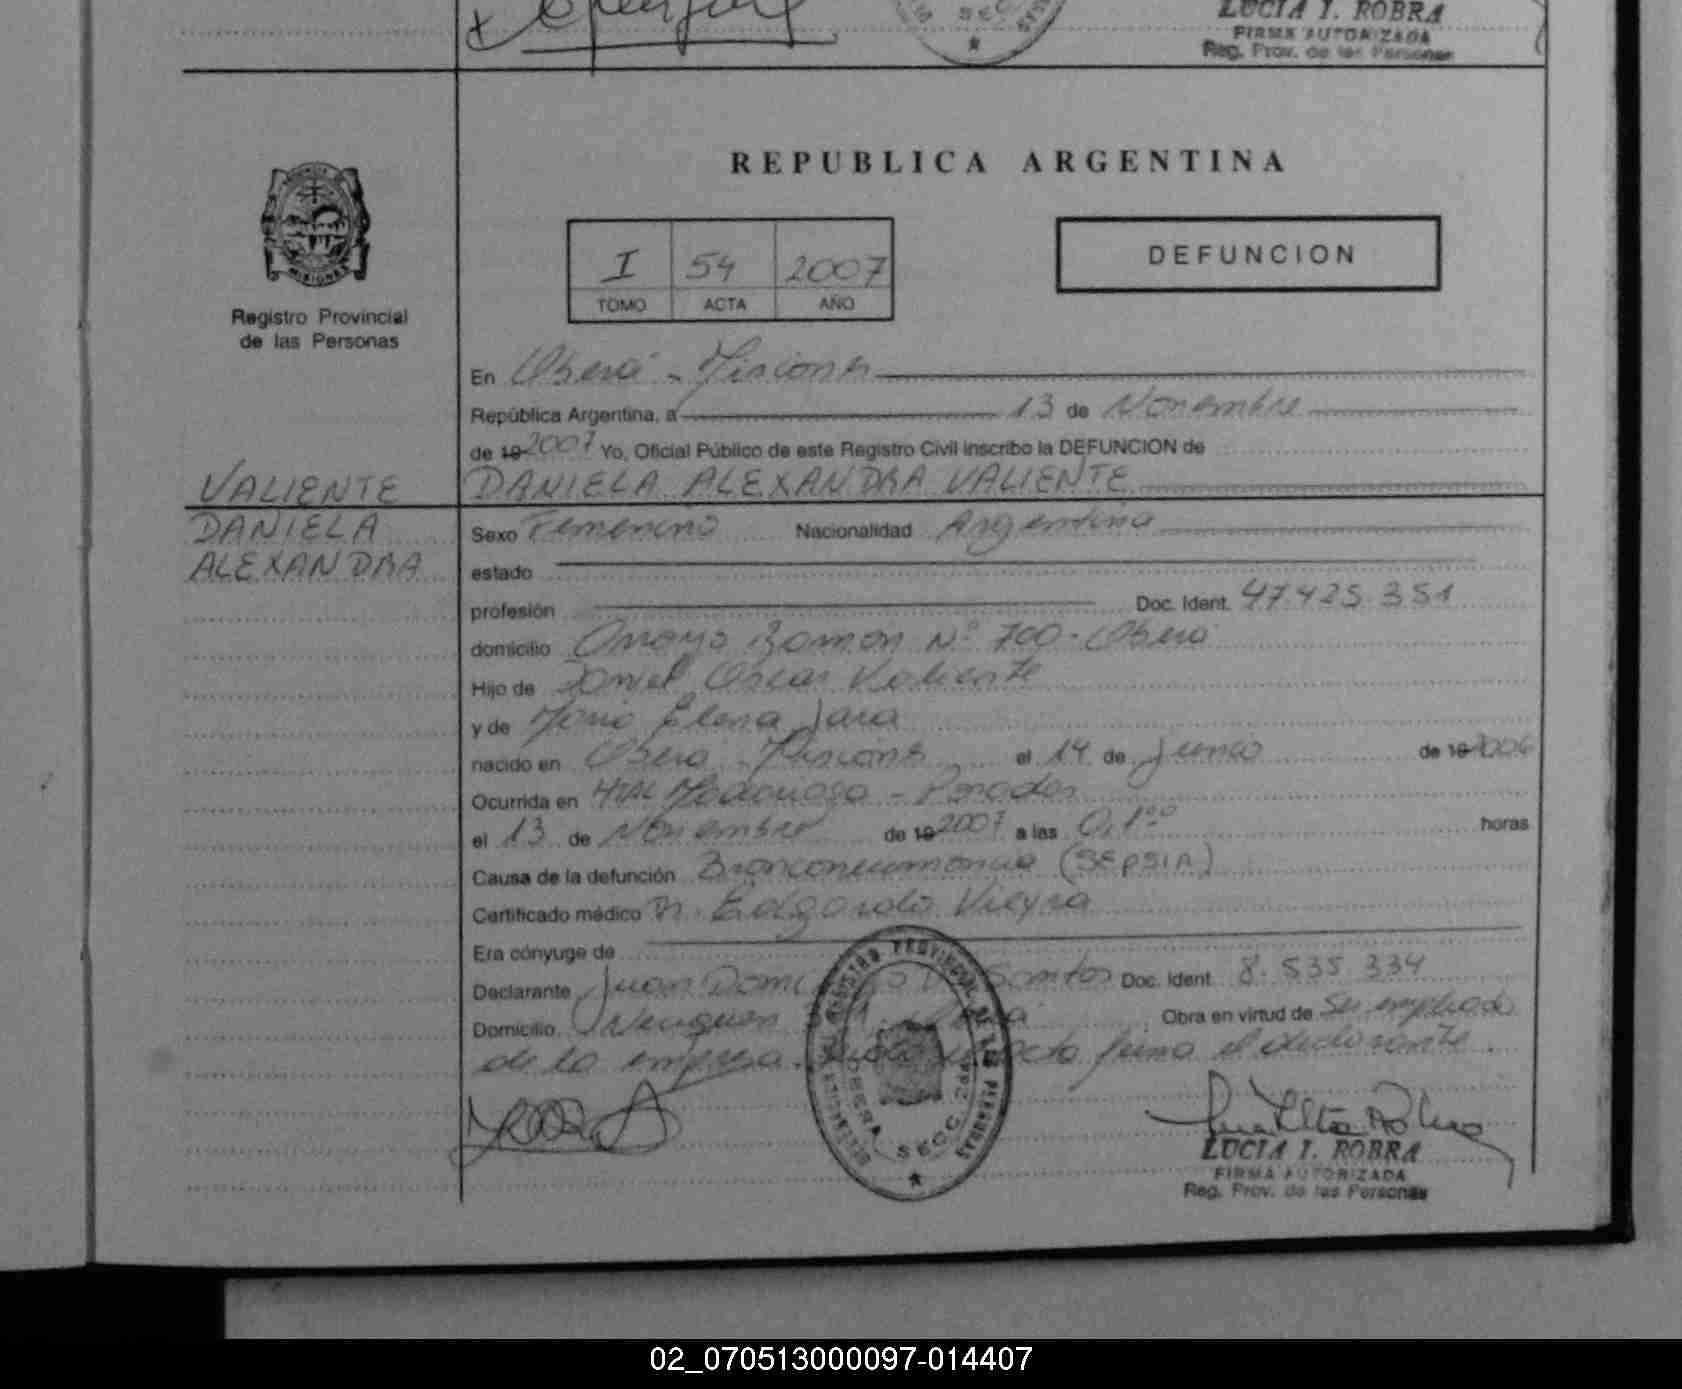 LUCIA I. ROBRA
FIRMA AUTORIZADA
Reg. Prov. de las Personas
REPUBLICA ARGENTINA
MISIONES
Registro Provincial
de las Personas
I 54 2007
TOMO ACTA AÑO
DEFUNCION
En Oberá - Misiones
República Argentina, a 13 de Noviembre
de 19 2007 Yo, Oficial Público de este Registro Civil inscribo la DEFUNCION de
VALIENTE
DANIELA ALEXANDRA VALIENTE
DANIELA
ALEXANDRA
Sexo Femenino Nacionalidad Argentina
estado
profesión Doc. Ident. 47.425.351
domicilio Arroyo Ramon Nº 700 - Oberá
Hijo de Daniel Oscar Valiente
y de Maria Elena Jara
nacido en Oberá - Misiones el 14 de Junio de 19 2006
Ocurrida en Posadas
el 13 de Noviembre de 19 2007 a las horas
Causa de la defunción Bronconeumonia (SEPSIA)
Certificado médico Dr. Edgardo Vieyra
Era cónyuge de
Declarante Juan Doc. Ident. 8.535.334
Domicilio Neuquen Obra en virtud de Ser empleado
de la empresa. acta firma el declarante.
REGISTRO PROVINCIAL DE LAS PERSONAS
OBERA SECC.
LUCIA I. ROBRA
FIRMA AUTORIZADA
Reg. Prov. de las Personas
02_070513000097-014407